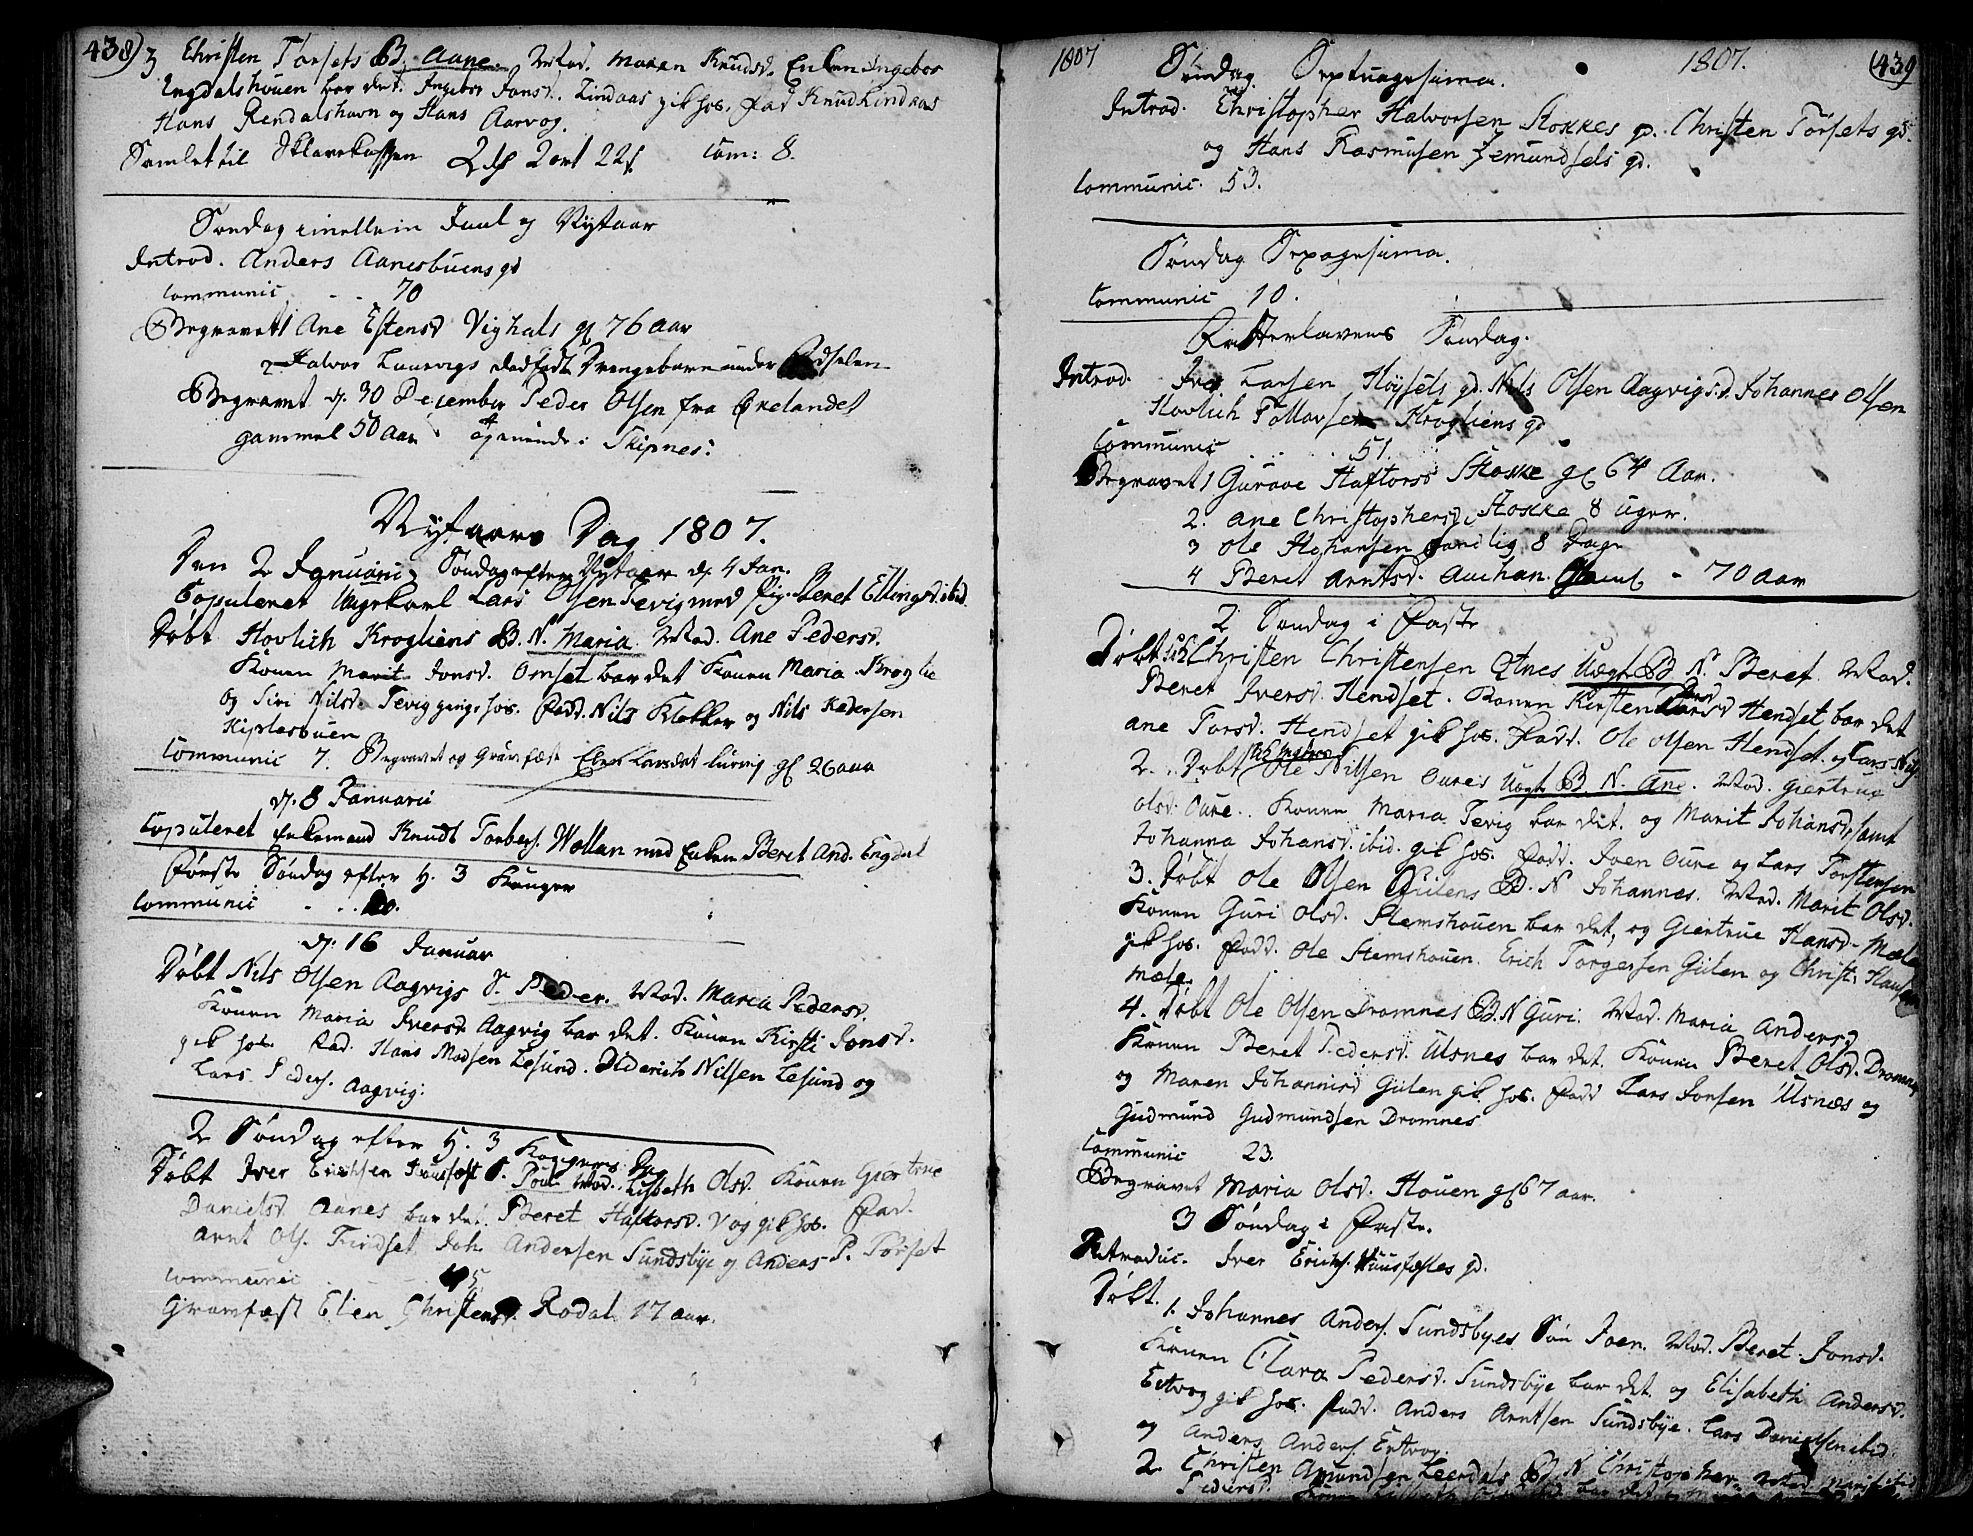 438)
3 Christen Torsets B. Aane. Mod. Maren Knudsd. Enken Ingebor
Engdalshouen bar det. Ingebor Jonsd. Lindaas gik hos. Fad Knud Lindaas
Hans Rendalshavn og Hans Aarvog.
Samlet til Sklavekassen 2 ort 22 s. Com: 8.
Søndag imellem Juul og Nytaar
Introd. Anders Aanesbuens gd
Communic . . 70
Begravet 1 Ane Estensd Vighals gl 76 Aar
2 Halvor Laurvigs dødfødt Drengebarn under Fødselen
Begravet d. 30 December Peder Olsen fra Ørelandet
gammel 50 Aar Skipnes:
Nytaars Dag 1807.
Den 2 Januarii Søndag efter Nytaar d. 4 Jan.
Copuleret Ungekarl Lars Olsen Tevig med Pig. Beret Ellingsd. ibid.
Døbt Hovlich Krogliens B. N. Maria. Mod. Ane Pedersd.
Konen Marit Jonsd. Omset bar det Konen Maria Kroglie
og Siri Nilsd. Tevig ginge hos. Fadd. Nils Klokker og Nils Pedersen
Communic 7. Begravet og Gravfæst Elen Larsdat Lurvig gl 26 aar
d. 8 Januarii
Copuleret Enkemand Knudt Torbers. Wollan med Enken Beret And. Engdal
Første Søndag efter H. 3 Konger
Communic . . .
d. 16 Januar
Døbt Nils Olsen Aagvigs S. Peder. Mod. Maria Pedersd.
Konen Maria Iversd Aagvig bar det. Konen Kirsti Jonsd.
gik hos. Fad. Hans Madsen Lesund. Diderich Nilsen Lesund og
Lars Peders. Aagvig.
2 Søndag efter H. 3 Kongers Dag
Døbt Iver Erichsen Huusfest S. Poul Mod. Lisbeth Olsd. Konen Giertrue
Danielsd Aanes bar det. Beret Haftorsd. Vog gik hos. Fad.
Arnt Ols. Tindset Joh. Andersen Sundsbye og Anders P. Torset
Communic . . . 5
Gravfæst Elen Christensd. Rodal 17 aar.
1807 1807. (439
Søndag Septuagesima.
Introd. Christopher Halvorsen Stokkes gd. Christen Torsets gd.
og Hans Rasmusen Gemundsets gd.
Communic. 53.
Søndag Sexagesima.
Communic 10.
Fastelavens Søndag.
Introd. Iver Larsen Høysets gd. Nils Olsen Aagvigs d. Johannes Olsen
Hovlich Tollovsen Krogliens gd
Communic . . . . . 51.
Begravet 1 Guroe Haftorsd Stokke gl 64 Aar.
2. Ane Christophersd. Stokke 8 uger.
3 Ole Johansen 8 Dage
4 Beret Arntsd. Auchan. - 70 aar
2 Søndag i Faste
Døbt Christen Christensen Otnes Uægt B N Beret. Mod.
Beret Iversd. Hendset. Konen Kirsten Larsd Hendset bar det
Ane Torsd. Hendset gik hos. Fadd. Ole Olsen Hendset og Lars ibid
2. Døbt Ole Nilsen Oures Uægt B. N. Ane. Mod. Giertrue
Olsd. Oure. Konen Maria Tevig bar det. og Marit Johansd. samt
Johanna Johansd. ibid. gik hos. Fadd. Joen Oure og Lars Torstensen
3. Døbt Ole Olsen Gulens B. N Johannes. Mod. Marit Olsd.
Konen Guri Olsd. Stemshouen bar det, og Giertrue Hansd. Mæle
gik hos. Fadd. Ole Stemshouen. Erich Torgersen Gulen og Christ: Hans
Mæle.
4. Døbt Ole Olsen Dromnes B. N Guri. Mod. Maria Andersd
Konen Beret Pedersd. Ulsnes bar det. Konen Beret Olsd. Dromnes
og Maren Johannisd Gulen gik hos. Fadd Lars Jonsen Ulsnæs og
Gudmund Gudmundsen Dromnes
Communic 23.
Begravet Maria Olsd. Houen gl 67 aar.
3 Søndag i Faste.
Introduc. Iver Erichs. Huusfestes gd.
Døbt. 1. Johannes Anders. Sundsbyes Søn Joen. Mod. Beret Jonsd.
Konen Clara Pedersd. Sundsbye bar det. og Elisabeth Andersd.
Ertvog gik hos. Fadd. Anders Arntsen Sundsbye. Lars Danielsen ibid.
og Anders Anders. Ertvog.
2. Christen Amundsen Leerdals B. N. Christopher. Mod. Marit
Pedersd.